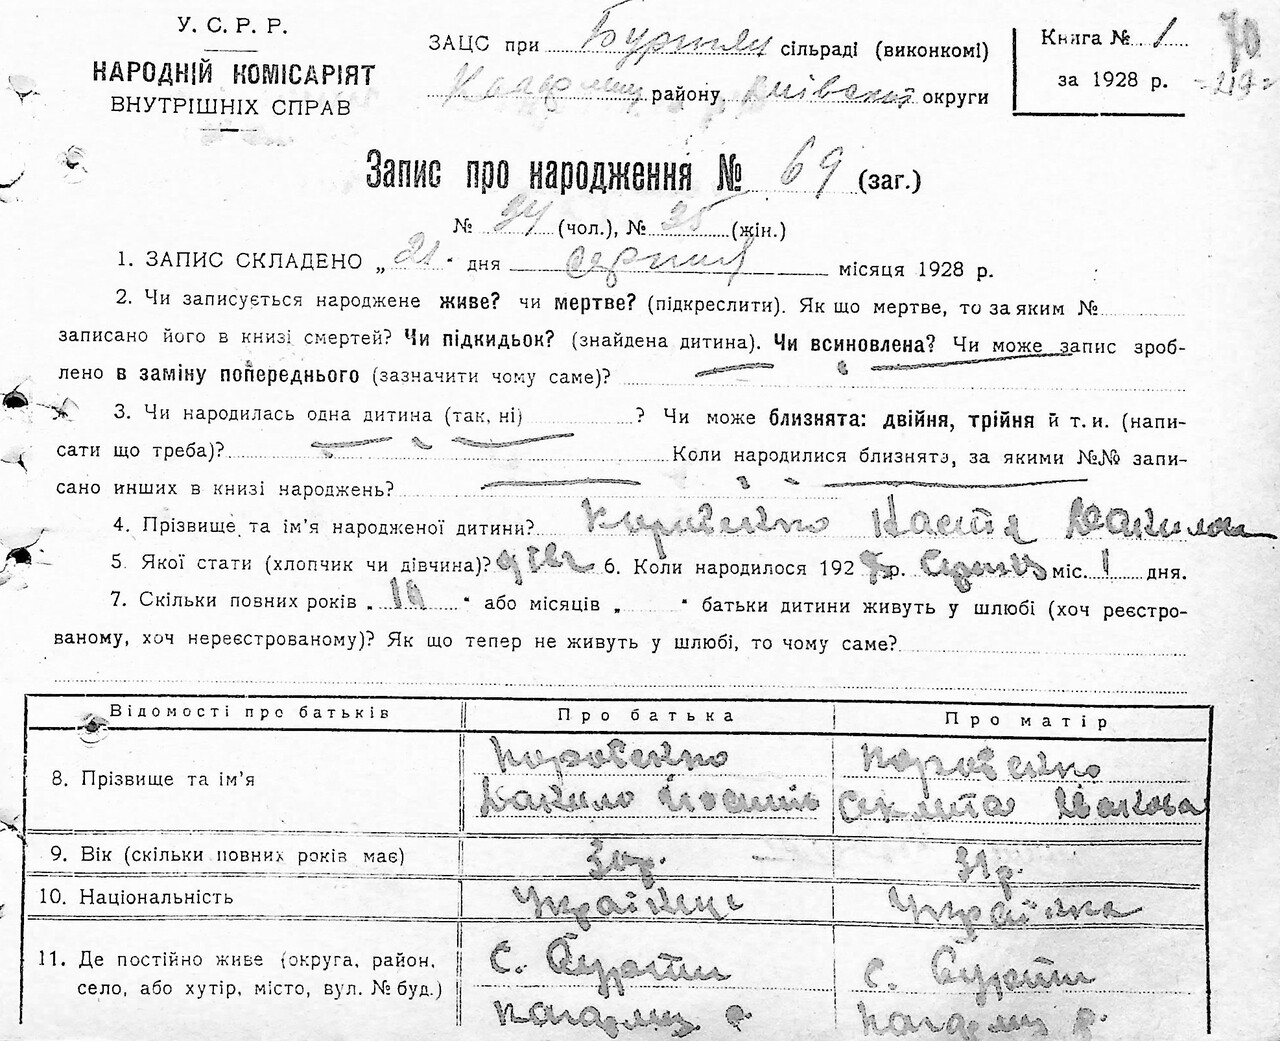 У. С. Р. Р.
НАРОДНІЙ КОМІСАРІЯТ
ВНУТРІШНІХ СПРАВ
ЗАЦС при сільраді (виконкомі)
району, Київської округи
Книга № 1
за 1928 р.
70
Запис про народження № 69 (заг.)
№ 34 (чол.), № 35 (жін.)
1. ЗАПИС СКЛАДЕНО „ 21 " дня серпня місяця 1928 р.
2. Чи записується народжене живе? чи мертве? (підкреслити). Як що мертве, то за яким №
записано його в книзі смертей? Чи підкидьок? (знайдена дитина). Чи всиновлена? Чи може запис зроб-
лено в заміну попереднього (зазначити чому саме)?
3. Чи народилась одна дитина (так, ні) ? Чи може близнята: двійня, трійня й т. и. (напи-
сати що треба)? Коли народилися близнята, за якими №№ запи-
сано инших в книзі народжень?
4. Прізвище та ім'я народженої дитини? Настя
5. Якої стати (хлопчик чи дівчина)? дівч 6. Коли народилося 1928 р. Серпня міс. 1 дня.
7. Скільки повних років „ 10 " або місяців „ " батьки дитини живуть у шлюбі (хоч реєстро-
ваному, хоч нереєстрованому)? Як що тепер не живуть у шлюбі, то чому саме?
Відомості про батьків Про батька Про матір
8. Прізвище та ім'я
Данило
9. Вік (скільки повних років має) 31 р.
10. Національність Українець Українка
11. Де постійно живе (округа, район, с. с.
село, або хутір, місто, вул. № буд.)